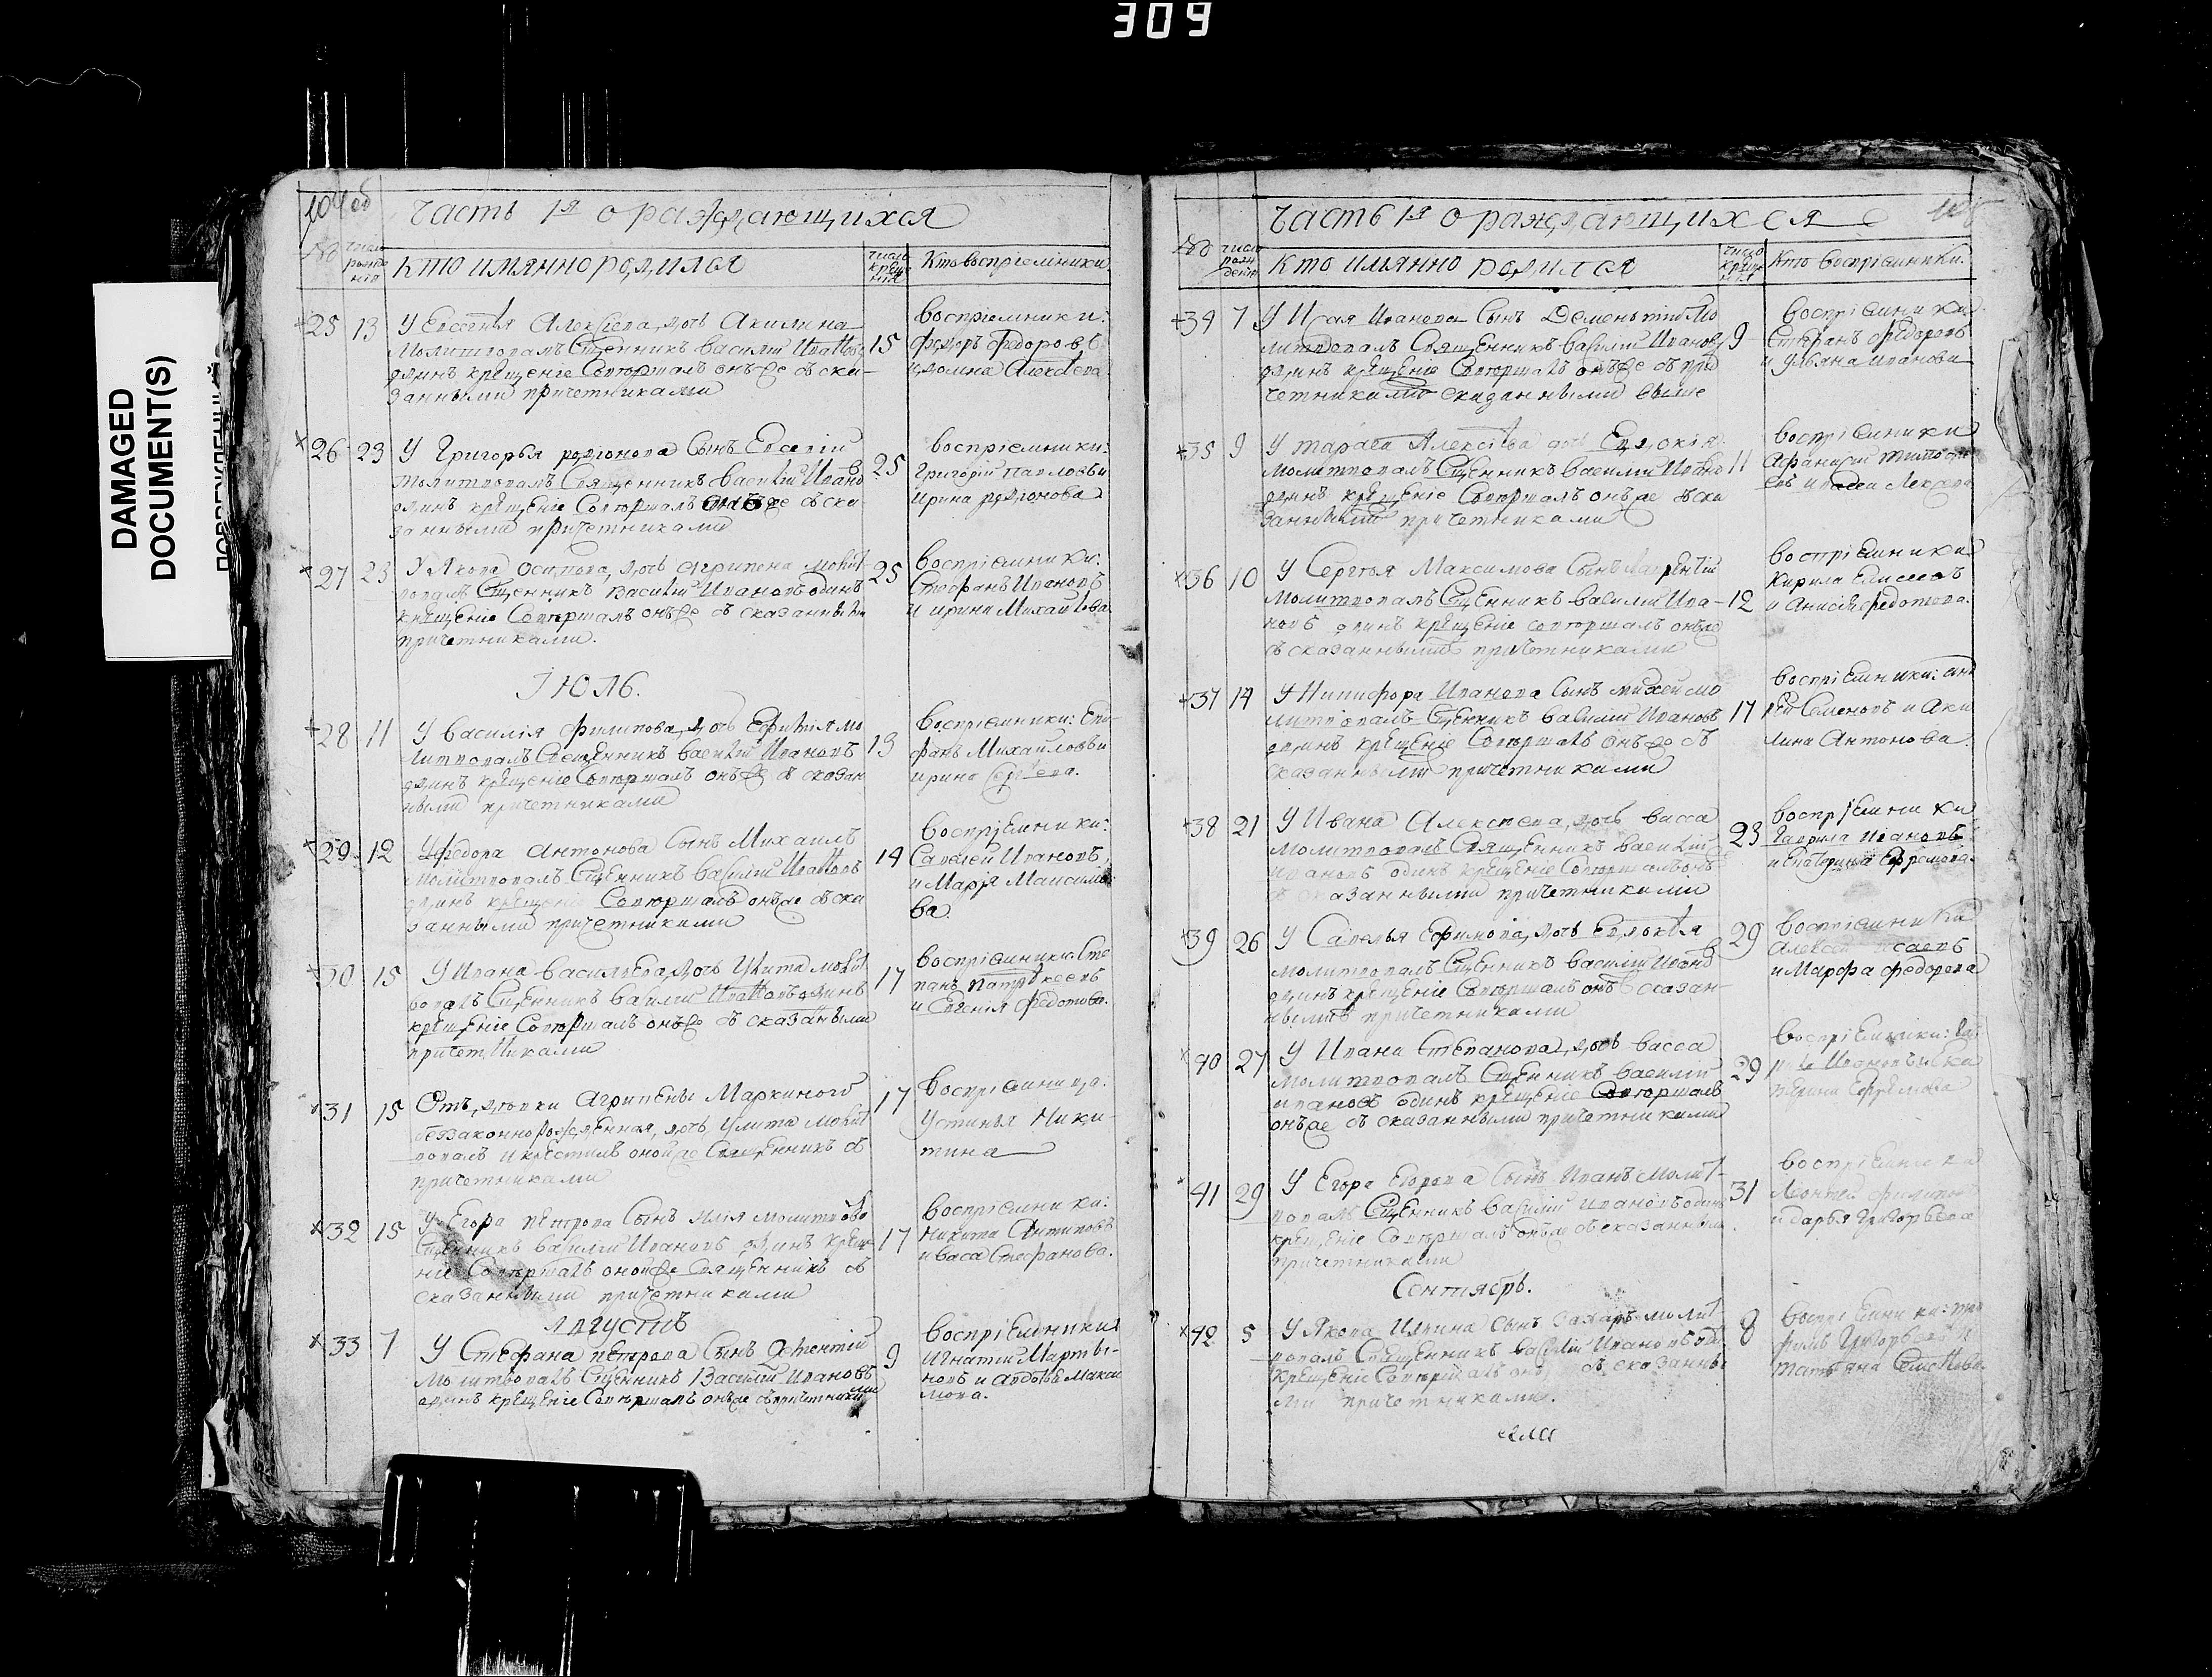 309
DAMAGED
DOCUMENT(S)
104 об
часть 1я о раждающихся
№
число
рожде
нія
кто имянно родился
число
креще
нія
Кто воспріемники
25 13 У Евсевья Алексіева, дочь Акилина
молитвовалъ Сщенникъ василій Ивановъ
одинъ крещеніе Совершалъ онъже съ ска-
занными причетниками
15
воспріемники:
Федоръ Федоровъ
и домна Алексѣева
26 23 У Григорья родіонова Сынъ Евсевій
молитвовалъ Священникъ Василій Ивано
одинъ крещеніе Совершалъ онъже съ ска-
занными причетниками
25
воспріемники:
Григорій Павловъ и
ирина родіонова
27 23 У Якова осипова, дочь агрипена молит
вовалъ Сщенникъ Василій Ивановъ одинъ
крещеніе Совершалъ онъже съ сказанными
причетниками.
25
воспріемники:
Стефанъ Ивановъ
и ирина Михайлова
Июль.
28 11 У василія филипова, дочь Ефимія мо
литвовалъ Священникъ василій Ивановъ
одинъ крещеніе Совершалъ онъже съ сказан
ными причетниками
13
воспріемники: Епи-
фанъ Михайловъ и
ирина Сергѣева.
29 12 У федора Антонова Сынъ Михаилъ
молитвовалъ Сщенникъ василій Ивановъ
одинъ крещеніе Совершалъ онъже съ ска
занными причетниками
14
воспріемники:
Савелей Ивановъ,
и Марія Максимо
ва.
30 15 У Ивана васильева, дочь Улита молит
вовалъ Сщенникъ василій Ивановъ одинъ
крещеніе Совершалъ онъже съ сказаными
причетниками
17
воспріемники: Сте
панъ патрѣкеевъ
и Евгенія федотова.
31 15 Отъ дѣвки Агрипены Маркиной
беззаконнорожденная, дочь Улита молит
вовалъ и крестилъ оной же Священникъ съ
причетниками
17
воспріемница:
Устинья Ники-
тина
32 15 У Егора петрова Сынъ Илія молитвова
Сщенникъ василій Ивановъ одинъ креще
ніе Совершалъ оной же Священникъ съ
сказанными причетниками
17
воспріемники:
никита Антиповъ
и васа Стефанова.
Августъ
33 7 У Стефана петрова Сынъ
молитвовалъ Сщенникъ Василій Ивановъ
одинъ крещеніе Совершалъ онъже съ причетника
ми
9
воспріемники
Игнатій Марты-
новъ и Авдотья Макси
мова.
часть 1я о раждающихся
105
№
число
рож
денія
кто имянно родился
число
креще
нія
Кто воспріемники.
34 7 У Исая Иванова Сынъ Дементій мо
литвовалъ Священникъ василій Ивановъ
одинъ крещеніе Совершалъ онъже съ при
четниками сказанными выше
9
воспріемники
Стефанъ федоровъ
и Ульяна иванова
35 9 У тараса Алексѣева дочь Евдокія
молитвовалъ Сщенникъ василій Ивано
одинъ крещеніе Совершалъ онъже съ ска
занными причетниками
11
воспріемники
Афанасій тимофе
евъ
36 10 У Сергѣя Максимова Сынъ Лаврентій
молитвовалъ Сщенникъ василій Ива-
новъ одинъ крещеніе совершалъ онъже
съ сказанными причетниками
12
воспріемники
кирила Елисеевъ
и Анисія федотова.
37 14 У Никифора Иванова Сынъ михей мо
литвовалъ Сщенникъ василій Ивановъ
одинъ крещеніе Совершалъ онъже съ
сказанными причетниками
17
воспріемники: анд
рей Семеновъ и Аки
лина Антонова.
38 21 У Ивана Алексѣева, дочь васса
молитвовалъ Священникъ василій
ивановъ одинъ крещеніе Совершалъ онъ
съ сказанными причетниками
23
воспріемники
Гаврила ивановъ
и Екатерина Ефремова.
39 26 У Савелья Ефимова, дочь Евдокѣя
молитвовалъ Сщенникъ василій Ивановъ
одинъ крещеніе Совершалъ онъ съ сказан-
ными причетниками
29
воспріемники
Алексей Исаевъ
и Марфа федорова
40 27 У Ивана Степанова, дочь васса
молитвовалъ Сщенникъ василій
ивановъ одинъ крещеніе Совершалъ
онъже съ сказанными причетниками
29
воспріемники:
Ивановъ и ека
терина Ефремова
41 29 У Егора Егорова Сынъ Иванъ молит-
вовалъ Сщенникъ василій ивановъ одинъ
крещеніе Совершалъ онъже съ сказанными
причетниками
31
воспріемники
Леонтей филипов
и дарья Григорьева
Сентябрь.
42 5 У Якова Ильина Сынъ Захаръ молит-
вовалъ Священникъ василій Ивановъ оди
крещеніе Совершалъ онъ съ сказанны
ми причетниками.
8
воспріемники:
Григорьевъ и
татьяна Семенова